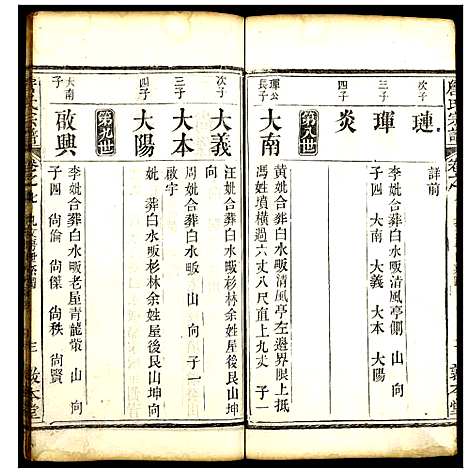 次子 璉 詳前
三子 琿 李妣合葬白水畈清風亭側 山 向
子四 大南 大義 大本 大陽
四子 炎
第八世
琿公長子 大南 黄妣合葬白水畈清風亭左邊界限上抵
馮姓墳橫過六丈八尺直上九丈 子一
次子 大義 汪妣合葬白水畈杉林余姓屋後艮山坤
向
三子 大本 周妣合葬白水畈 山 向 子一
啟宇
四子 大陽 妣 葬白水畈杉林余姓屋後艮山坤向
第九世
大南子 啟興 李妣合葬白水畈老屋青龍嘴 山 向
子四 尚倫 尚傑 尚秩 尚賢
敦本堂